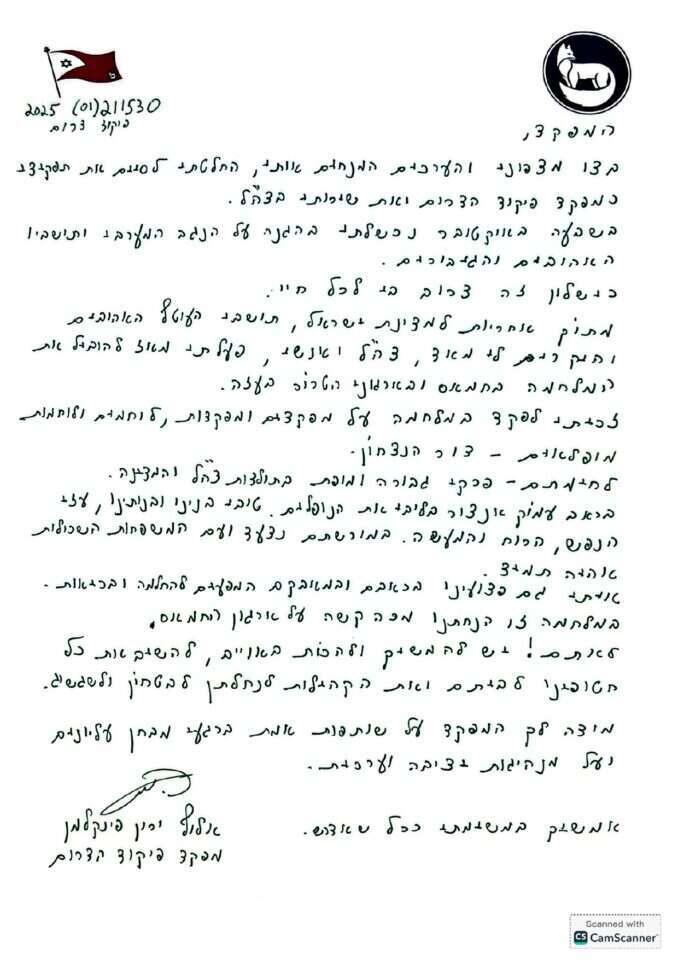 211530 (01) 2025
פיקוד דרום
המפקד,
בצו מצפוני והערכים המנחים אותי, החלטתי לסיים את תפקידי
כמפקד פיקוד הדרום ואת שירותי בצה"ל.
בשבעה באוקטובר נכשלתי בהגנה על הנגב המערבי ותושביו
האהובים והגיבורים.
כישלון זה צרוב בי לכל חיי.
מתוך אחריות למדינת ישראל, תושבי העוטף האהובים
והיקרים לי מאד, צה"ל ואנשיו, פעלתי מאז להוביל את
המלחמה בחמאס ובארגוני הטרור בעזה.
זכיתי לפקד במלחמה על מפקדים ומפקדות, לוחמים ולוחמות
מופלאים - דור הנצחון.
לחימתם - פרקי גבורה ומופת בתולדות צה"ל והמדינה.
בכאב עמוק אנצור בליבי את הנופלים. טובי בנינו ובנותינו, עזי
הנפש, הרוח והמעשה. במורשתם נצעד ועם המשפחות השכולות
אהיה תמיד.
איתי גם פצועינו בכאבם ובמאבקם המפעים להחלמה ובריאות.
במלחמה זו הנחתנו מכה קשה על ארגון החמאס.
לא תם! יש להמשיך ולהכות באוייב, להשיב את כל
חטופינו לביתם ואת הקהילות לנחלתן לבטחון ולשגשוג.
מודה לך המפקד על שותפות אמת ברגעי מבחן עליונים
ועל מנהיגות יציבה וערכית.
אמשיך במשימתי ככל שאדרש.
אלוף ירון פינקלמן
מפקד פיקוד הדרום
Scanned with
CS CamScanner